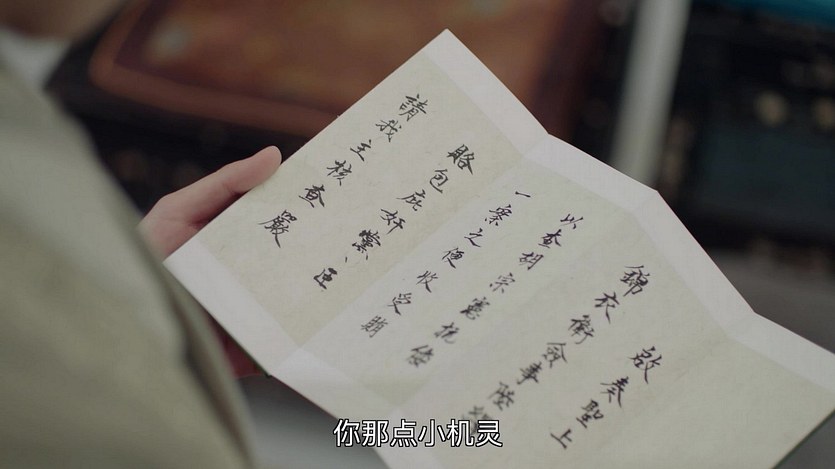 啟奏聖上
錦衣衛僉事陸
以查胡宗憲抗倭
一案之便收受賄
賂包庇奸黨、臣
請我主核查嚴
你那点小机灵